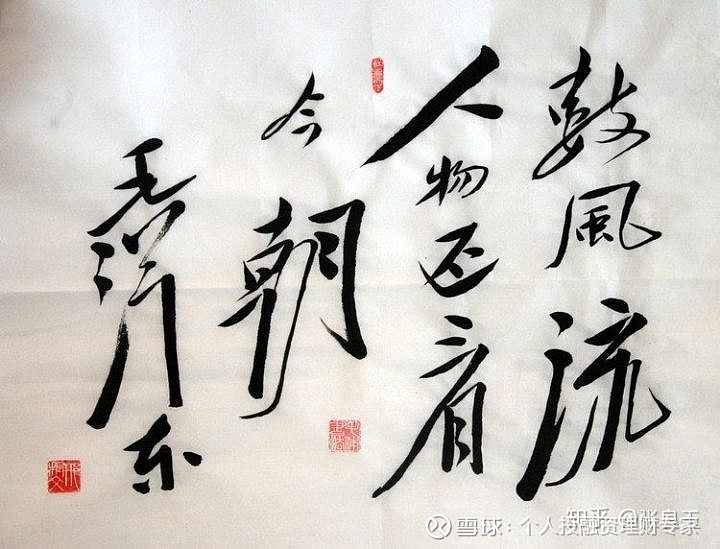 數風流
人物还看
今朝
毛泽东
知乎
雪球：个人投融资理财专家